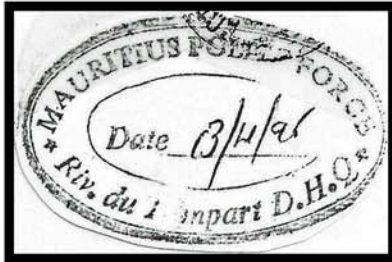 MAURITIUS POLICE FORCE
Date 13/4/96
Riv. du
D.H.Q.